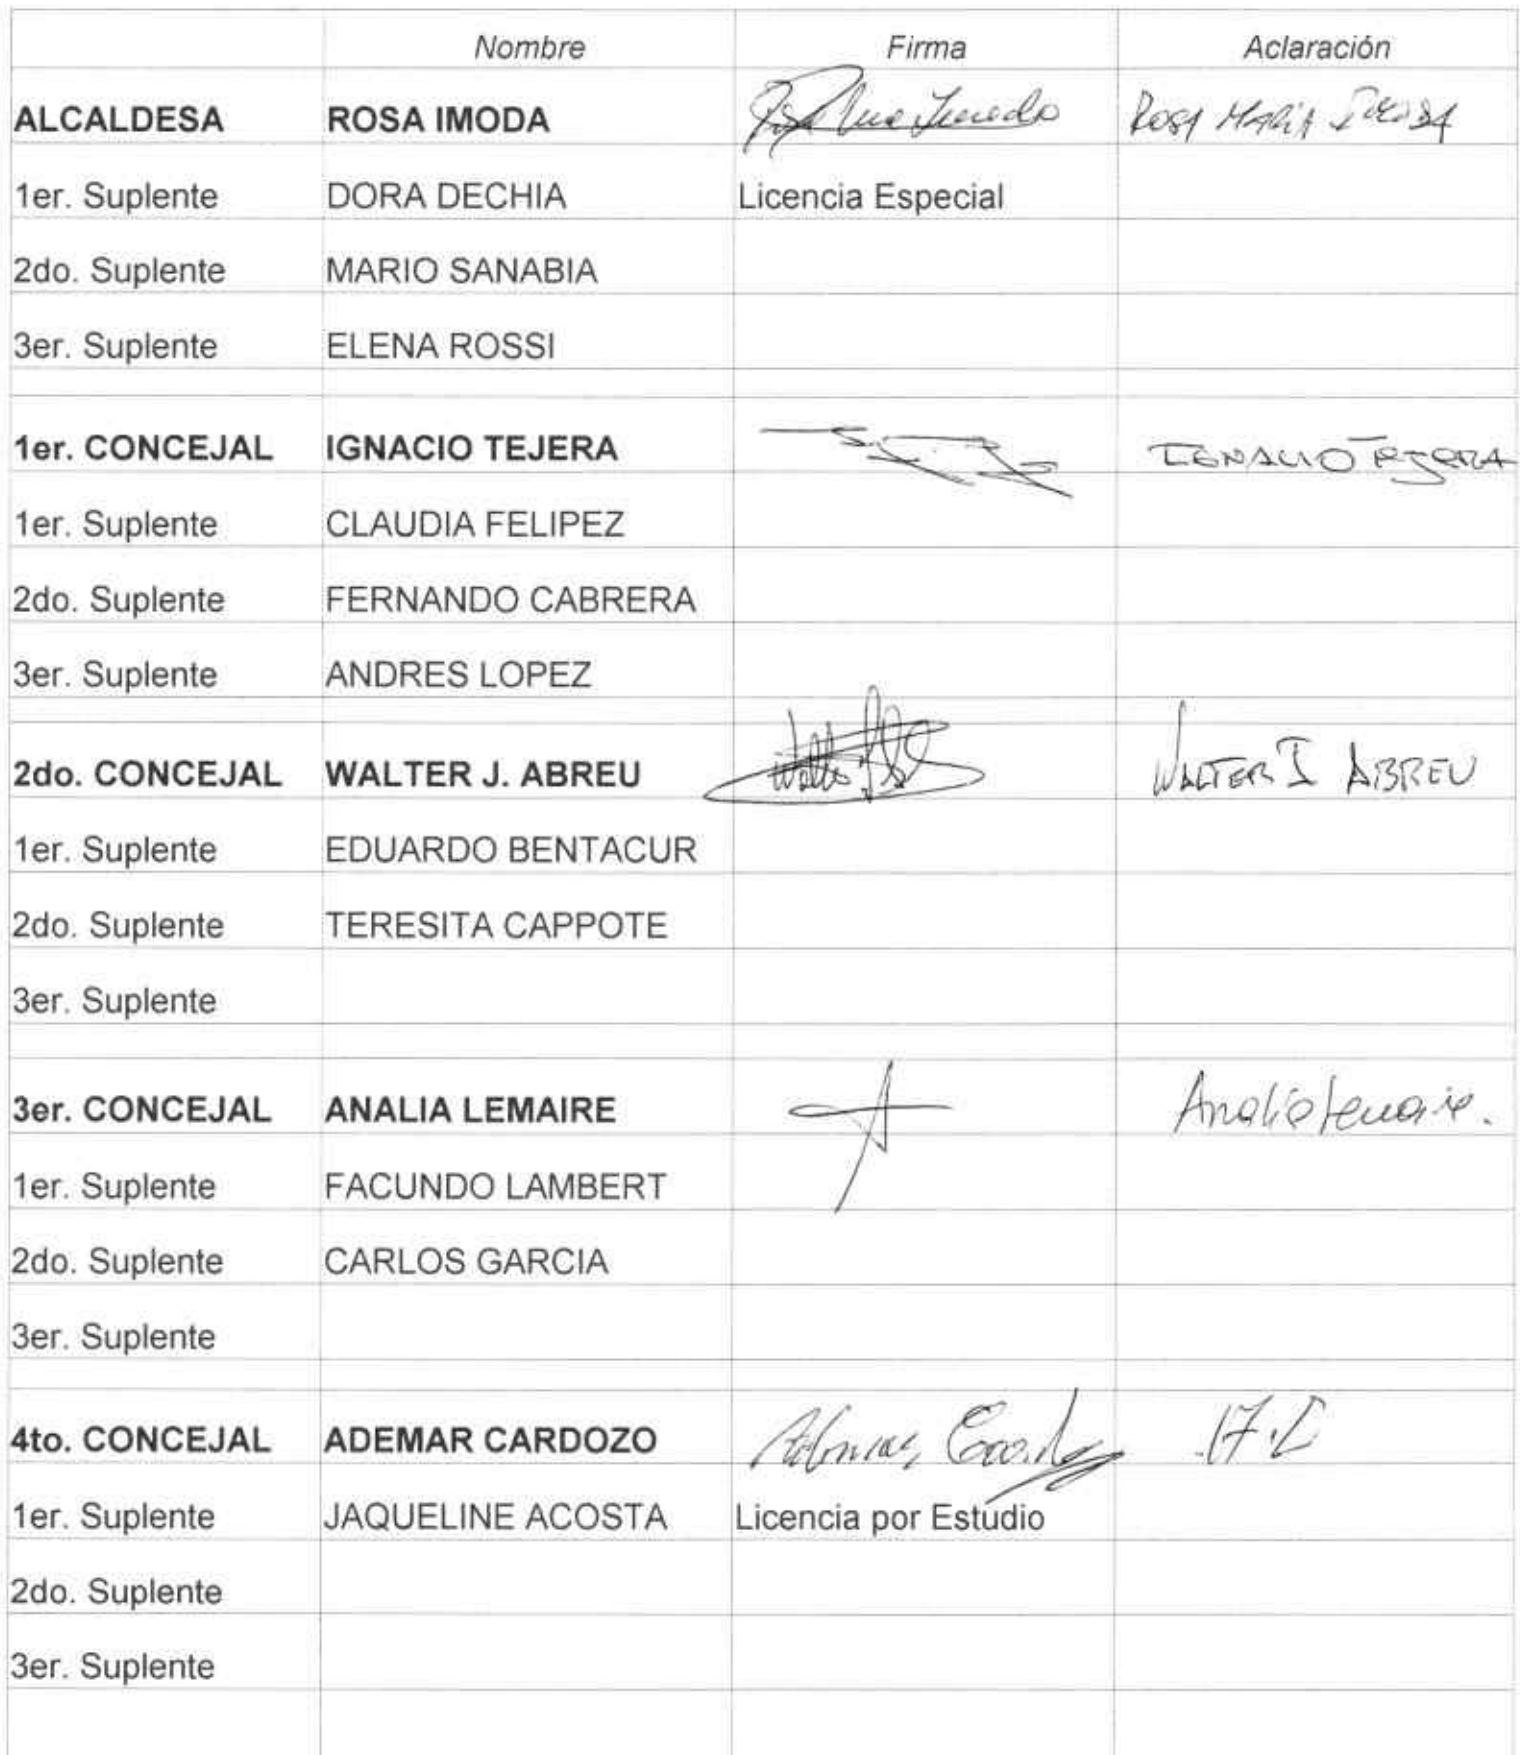 Nombre Firma Aclaración
ALCALDESA ROSA IMODA ROSA MARIA IMODA
1er. Suplente DORA DECHIA Licencia Especial
2do. Suplente MARIO SANABIA
3er. Suplente ELENA ROSSI
1er. CONCEJAL IGNACIO TEJERA IGNACIO TEJERA
1er. Suplente CLAUDIA FELIPEZ
2do. Suplente FERNANDO CABRERA
3er. Suplente ANDRES LOPEZ
2do. CONCEJAL WALTER J. ABREU WALTER J ABREU
1er. Suplente EDUARDO BENTACUR
2do. Suplente TERESITA CAPPOTE
3er. Suplente
3er. CONCEJAL ANALIA LEMAIRE Analia Lemaire.
1er. Suplente FACUNDO LAMBERT
2do. Suplente CARLOS GARCIA
3er. Suplente
4to. CONCEJAL ADEMAR CARDOZO
1er. Suplente JAQUELINE ACOSTA Licencia por Estudio
2do. Suplente
3er. Suplente